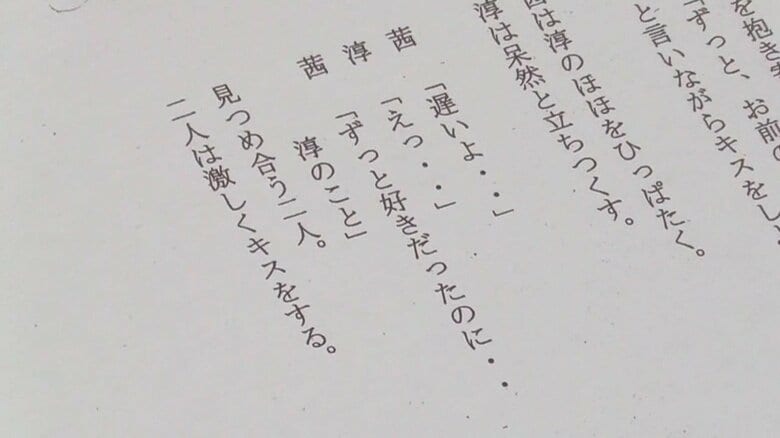 を抱き
「ずっと、お前の
と言いながらキスをし
茜は淳のほほをひっぱたく。
淳は呆然と立ちつくす。
茜　「遅いよ・・」
淳　「えっ・・」
茜　「ずっと好きだったのに・・
淳のこと」
見つめ合う二人。
二人は激しくキスをする。